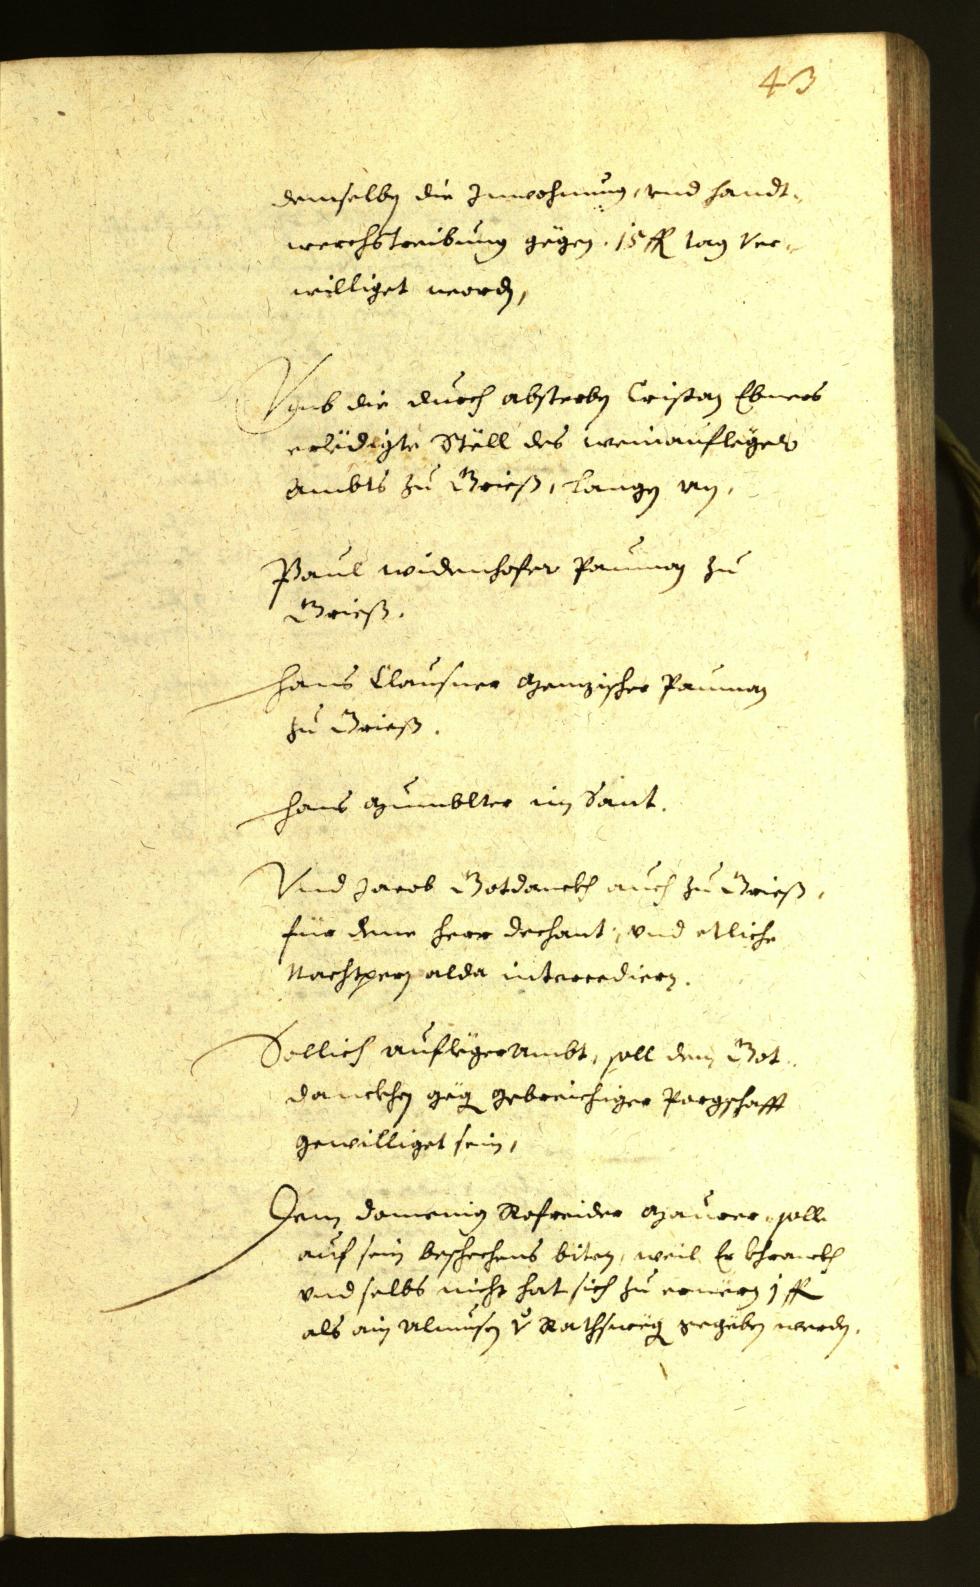 43
demselben die Inwohnung, vnd handt-
werchstreibung gegen. 15 fl tax Ver-
williget worden,
Vmb die durch absterben Cristan Ebners
erledigte Stell des weinauflegers
Ambts zu Grieß, langen an,
Paul widenhofer Pauman zu
Grieß.
Hans Clausner Pauman
zu Grieß.
Hans Gumblter im Sant.
Vnd Jacob Gotdanckh auch zu Grieß,
für dene herr dechant, vnd etliche
Nachtpern alda intercediern.
Sollich auflegerambt, soll dem Got-
danckhen gegen gebreichiger Porgschafft
gewilliget sein,
Dem domenig Rofreider Maurer, solle
auf sein beschechens biten, weil Er khranckh
vnd selbs nicht hat sich zu ernern 1 fl
als ain Almusen Rathswegen gegeben werden.